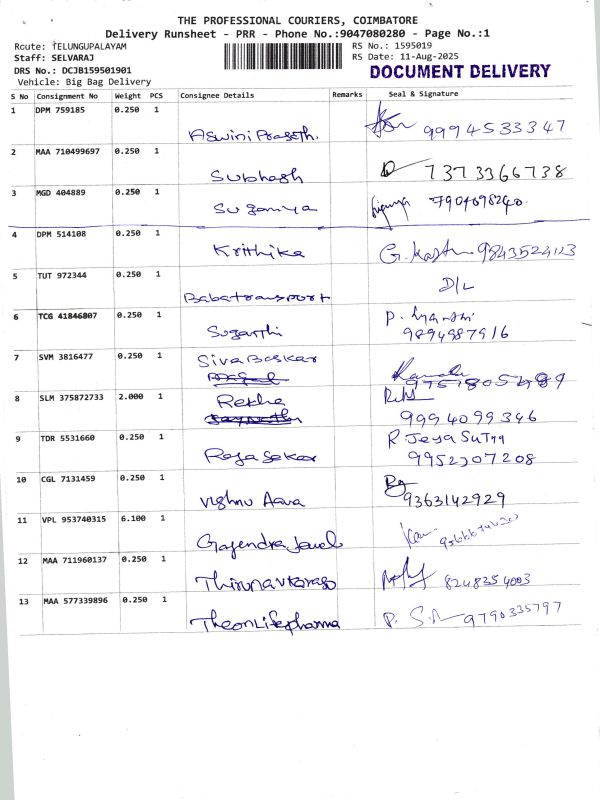 THE PROFESSIONAL COURIERS, COIMBATORE
Delivery Runsheet - PRR - Phone No.:9047080280 - Page No.:1
Route: TELUNGUPALAYAM
RS No.: 1595019
Staff: SELVARAJ
RS Date: 11-Aug-2025
DRS No.: DCJB159501901
DOCUMENT DELIVERY
Vehicle: Big Bag Delivery
S No Consignment No Weight PCS Consignee Details Remarks Seal & Signature
1 DPM 759185 0.250 1
Aswini Prasath. 9994533347
2 MAA 710499697 0.250 1
Subhash 7373366738
3 MGD 404889 0.250 1
Suganya 7904698240
4 DPM 514108 0.250 1
Krithika
5 TUT 972344 0.250 1
Babatransport D/L
6 TCG 41846807 0.250 1
Suganthi 9894987916
7 SVM 3816477 0.250 1
Siva Baskar
8 SLM 375872733 2.000 1
Rekha
9994099346
9 TDR 5531660 0.250 1
R Jeya
Raja Sekar 9952207208
10 CGL 7131459 0.250 1
Vishnu 9363142929
11 VPL 953740315 6.100 1
Gajendra
12 MAA 711960137 0.250 1
Thirunavkarasu 8248354003
13 MAA 577339896 0.250 1
Theonlifepharma 9790335797